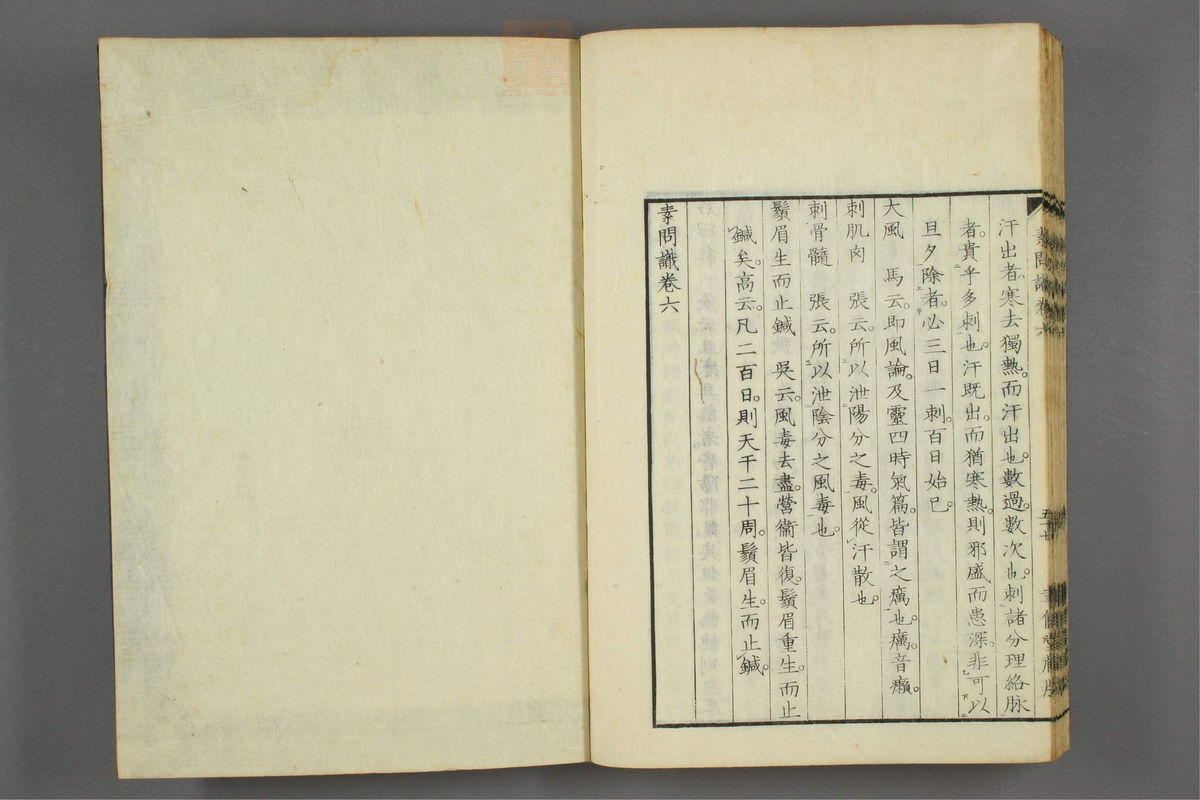 汗出者寒去獨熱。而汗出也。數過。數次也。刺諸分理絡脉
者。貴乎多刺也。汗既出。而猶寒熱。則邪盛而患深。非可以
旦夕除者。必三日一刺。百日始已。
大風 馬云。即風論。及靈四時氣篇。皆謂之癘也。癘音癩。
刺肌肉 張云。所以泄陽分之毒。風從汗散也。
刺骨髓 張云。所以泄陰分之風毒也。
鬚眉生而止鍼 吳云。風毒去盡。營衞皆復。鬚眉重生。而止
鍼矣。高云。凡二百日。則天干二十周。鬚眉生。而止鍼。
素問識卷六
素問識卷六
五十七